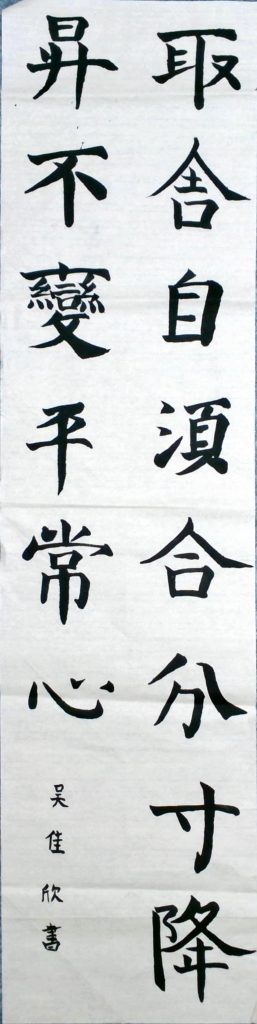 取舍自湏合分寸降
昇不變平常心
吴佳欣書